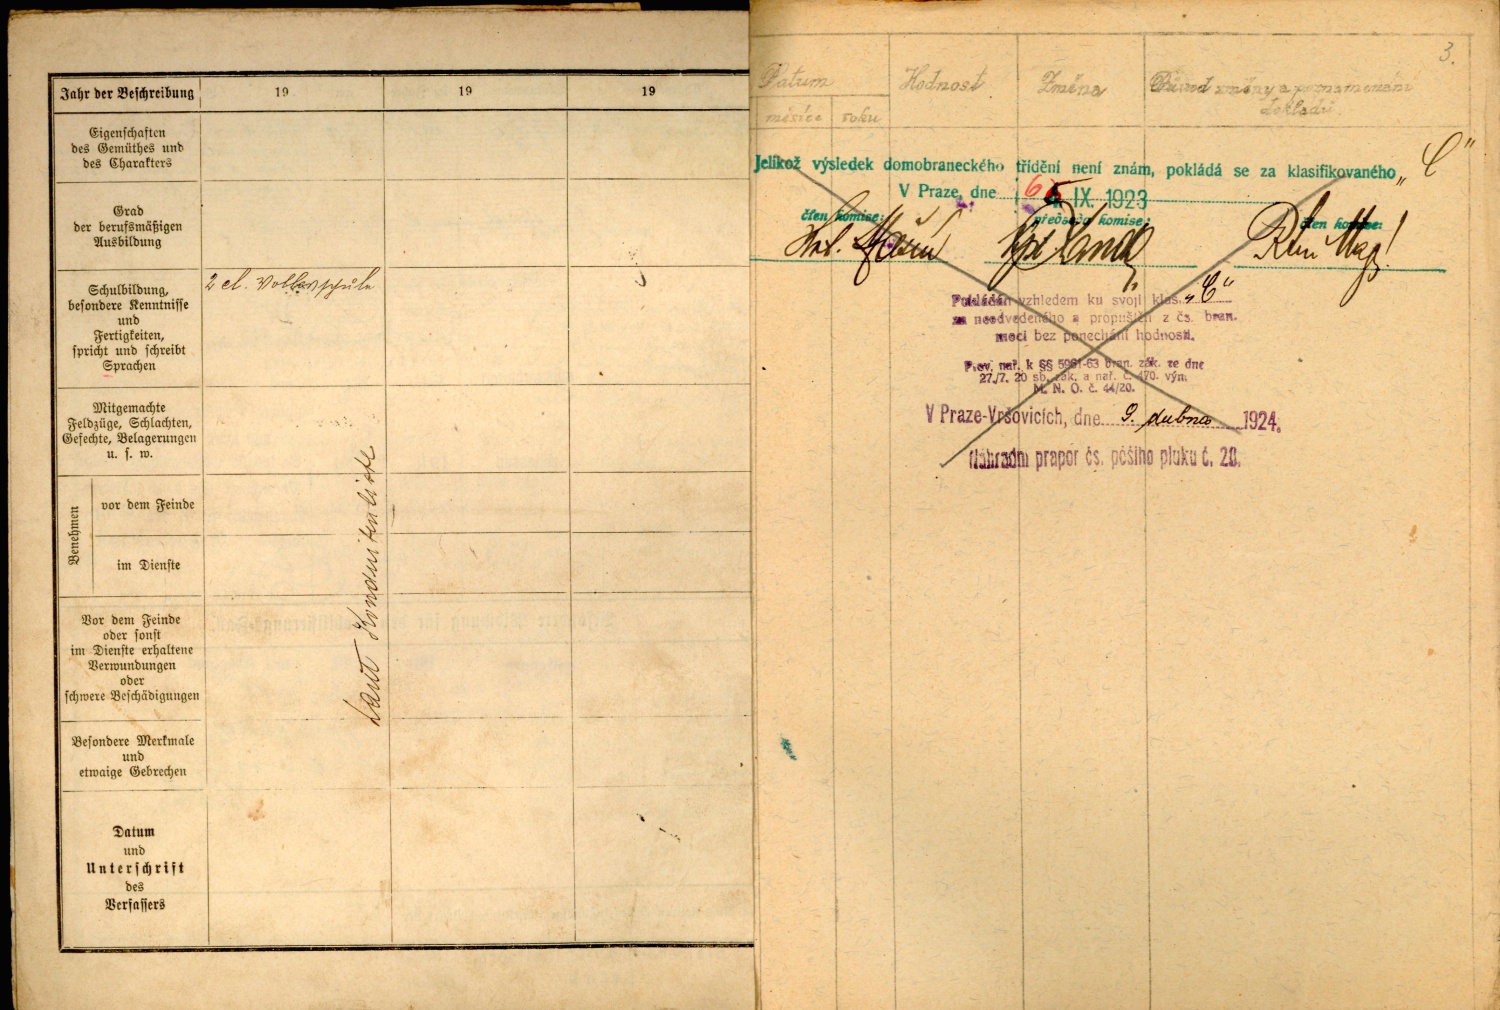 Jahr der Beschreibung 19 19 19
Eigenschaften
des Gemüthes und
des Charakters
Grad
der berufsmäßigen
Ausbildung
Schulbildung,
besondere Kenntnisse
und
Fertigkeiten,
spricht und schreibt
Sprachen
2 cl. Volksschule
Mitgemachte
Feldzüge, Schlachten,
Gefechte, Belagerungen
u. s. w.
Benehmen
vor dem Feinde
im Dienste
Laut Konduitenliste
Vor dem Feinde
oder sonst
im Dienste erhaltene
Verwundungen
oder
schwere Beschädigungen
Besondere Merkmale
und
etwaige Gebrechen
Datum
und
Unterschrift
des
Verfassers
3.
Datum Hodnost Změna Důvod změny a poznamenání
dokladů
měsíce roku
Jelikož výsledek domobraneckého třídění není znám, pokládá se za klasifikovaného „C"
V Praze, dne IX. 1923
člen komise: předseda komise: člen komise:
Pokládán vzhledem ku svojí klas. „C"
za neodvedeného a propuštěn z čs. bran.
moci bez ponechání hodnosti.
Prov. nař. k §§ 61-63 bran. zák. ze dne
27./7. 20 sb. zák. a nař. č. 470. vým.
M. N. O. č. 44/20.
V Praze-Vršovicích, dne 9. dubna 1924.
Náhradní prapor čs. pěšího pluku č. 28.